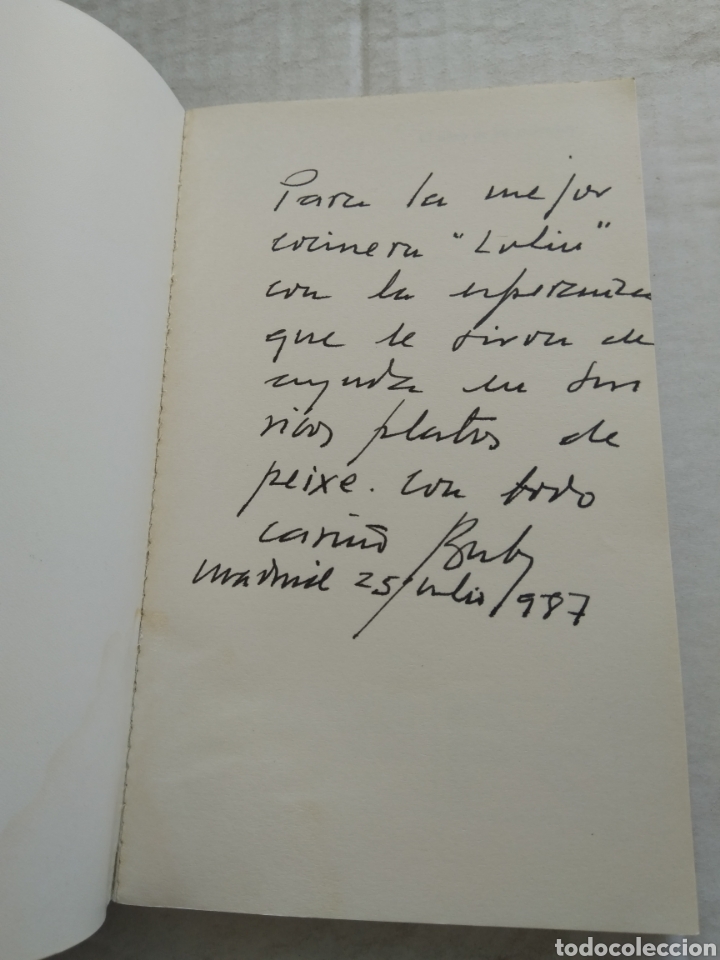 Para la mejor
cocinera "Loliu"
con la esperanza
que le sirva de
ayuda en sus
ricos platos de
peixe. con todo
cariño Buby
Madrid 25/Julio/987
todocoleccion